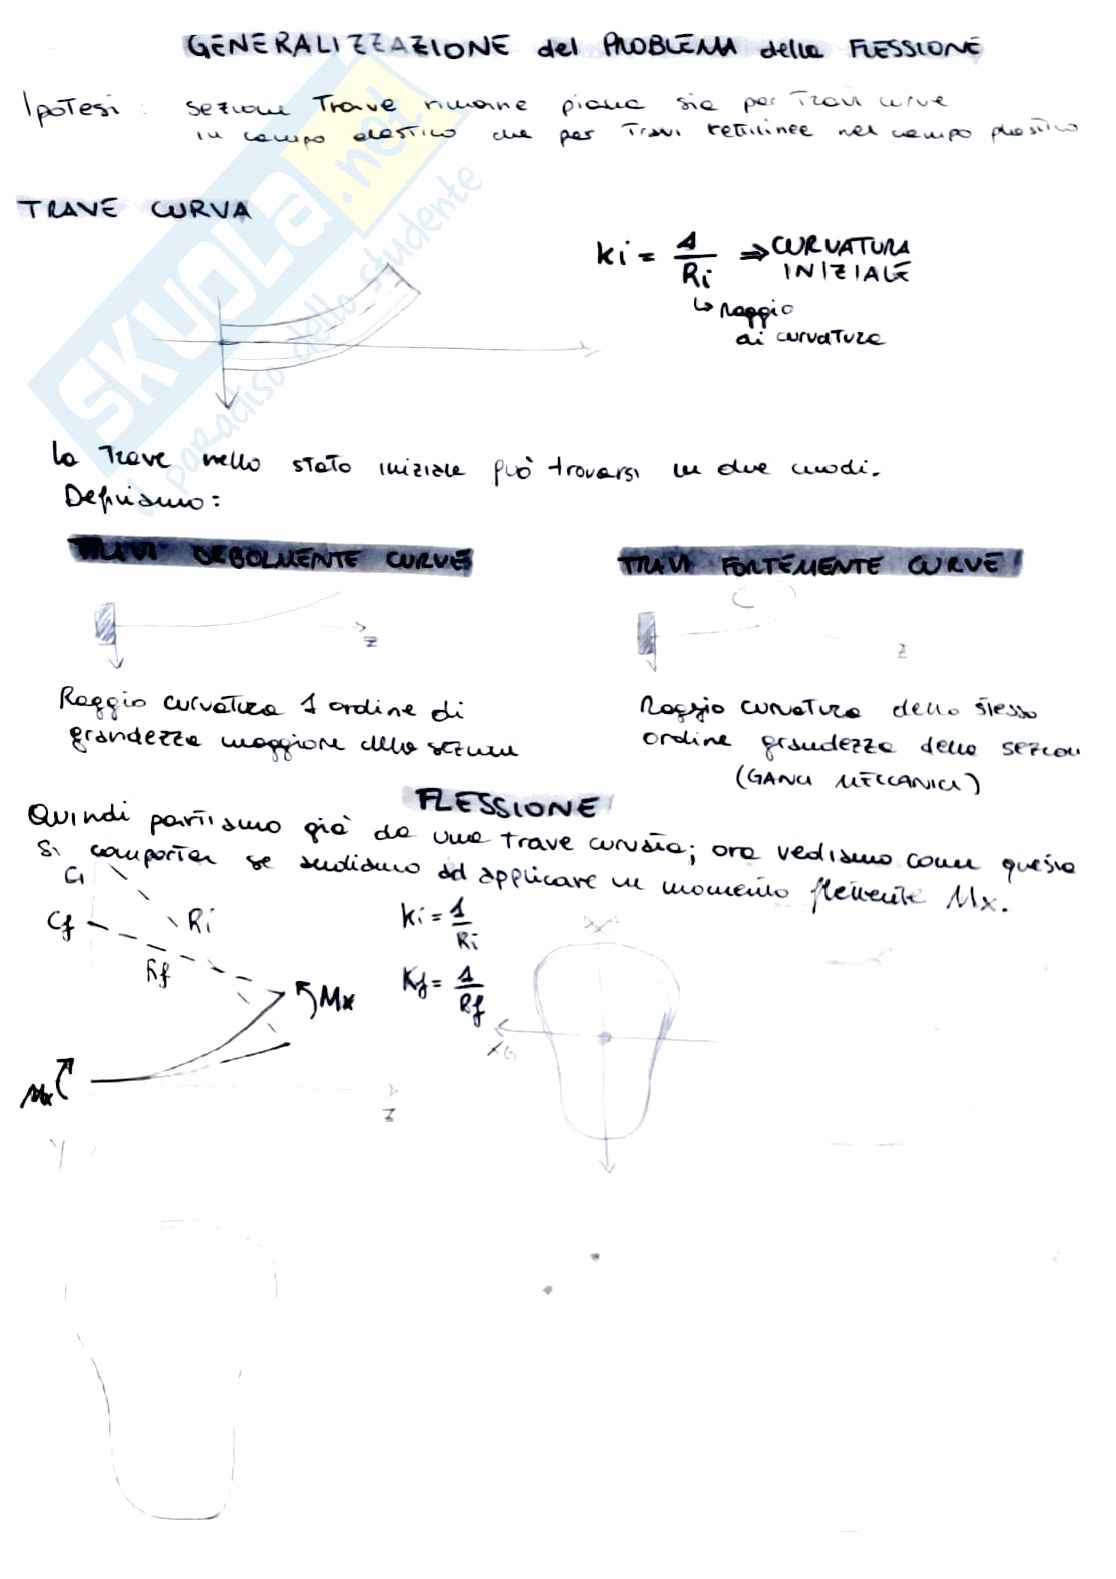 GENERALIZZAZIONE del PROBLEMA della FLESSIONE
Ipotesi: sezione Trave rimane piana sia per Travi curve
in campo elastico che per Travi rettilinee nel campo plastico
TRAVE CURVA
Ki = 1/Ri ⇒ CURVATURA INIZIALE
↳ Raggio
di curvatura
La Trave nello stato iniziale può trovarsi in due modi.
Definiamo:
TRAVI DEBOLMENTE CURVE
TRAVI FORTEMENTE CURVE
z
z
Raggio curvatura 1 ordine di
grandezza maggiore della sezione
Raggio curvatura dello stesso
ordine grandezza delle sezioni
(GANCI MECCANICI)
FLESSIONE
Quindi partiamo già da una trave curvata; ora vediamo come questa
si comporta se andiamo ad applicare un momento flettente Mx.
Ci
Cf
Ri
Rf
Mx
Mx
z
y
Ki = 1/Ri
Kf = 1/Rf
XG
SKUOLA.net
il paradiso dello studente